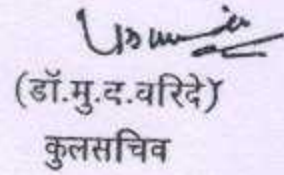 (डॉ.मु.द.वरिदे)
कुलसचिव